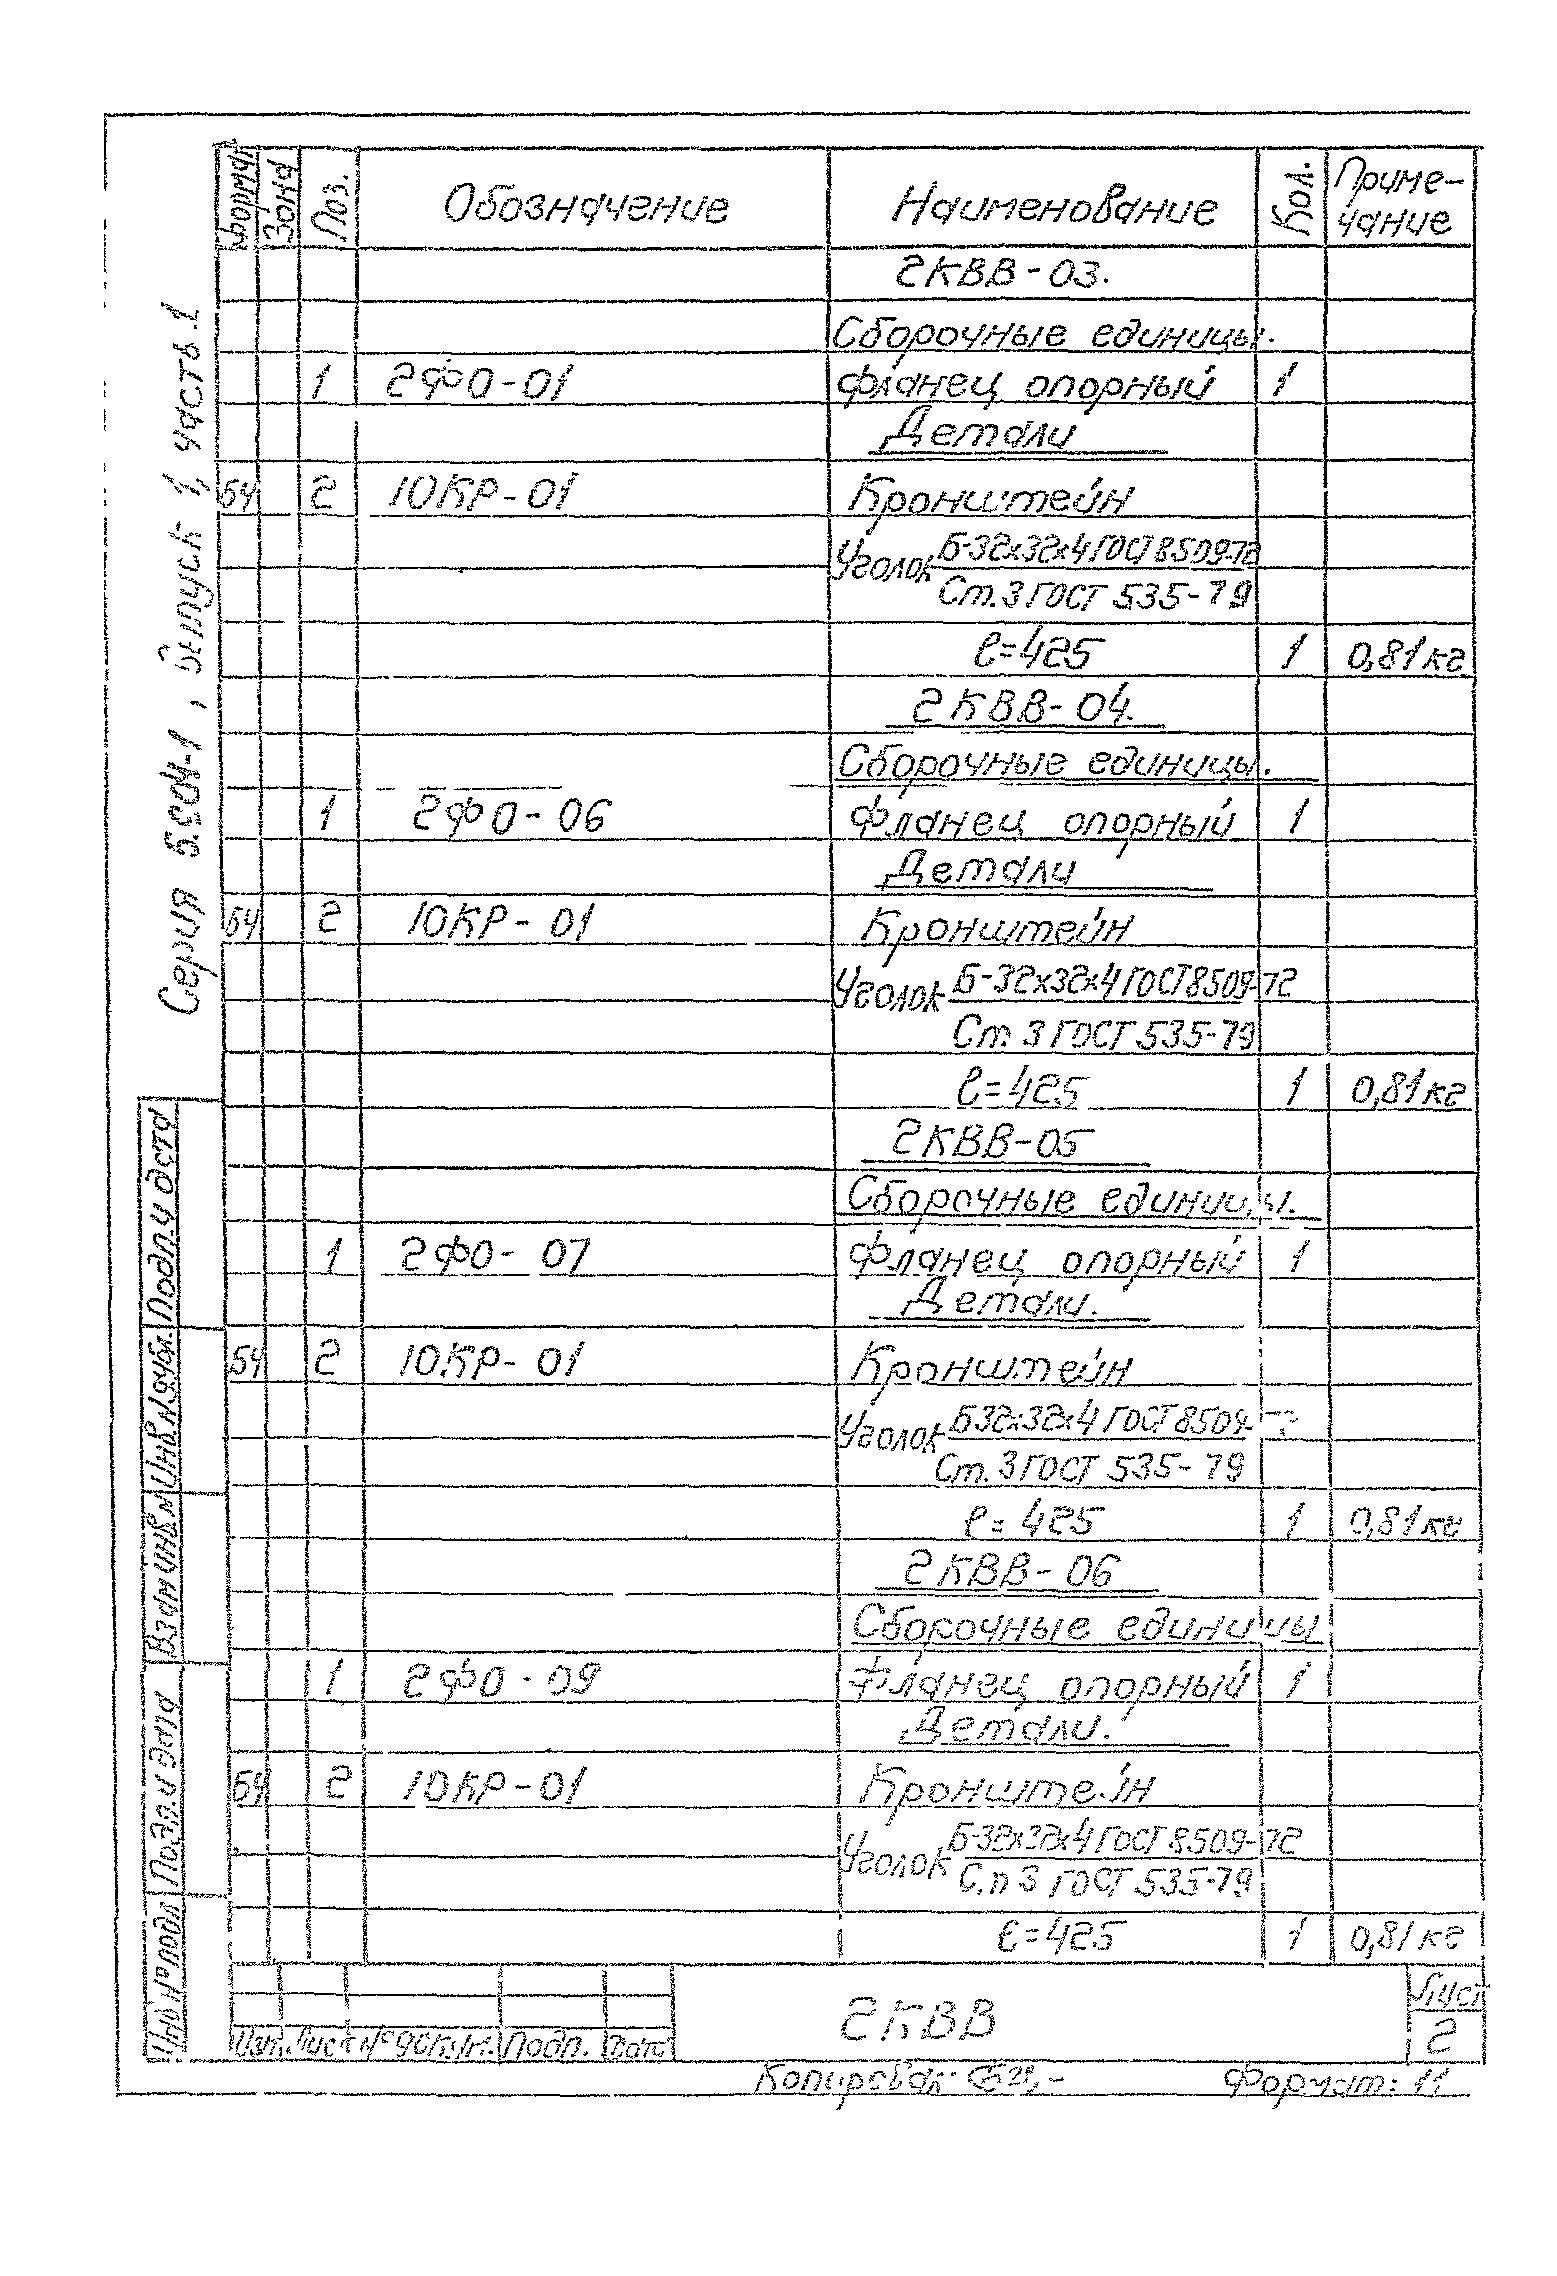 Формат Зона Поз. Обозначение Наименование Кол. Приме-
чание
2КВВ-03.
Сборочные единицы.
1 2ФО-01 Фланец опорный 1
Детали
БЧ 2 10КР-01 Кронштейн
Уголок Б-32х32х4 ГОСТ 8509-72
Ст.3 ГОСТ 535-79
ℓ=425 1 0,81кг
2КВВ-04.
Сборочные единицы.
1 2ФО-06 Фланец опорный 1
Детали
БЧ 2 10КР-01 Кронштейн
Уголок Б-32х32х4 ГОСТ 8509-72
Ст. 3 ГОСТ 535-79
ℓ=425 1 0,81кг
2КВВ-05
Сборочные единицы.
1 2ФО-07 Фланец опорный 1
Детали.
БЧ 2 10КР-01 Кронштейн
Уголок Б32х32х4 ГОСТ 8509-72
Ст.3 ГОСТ 535-79
ℓ=425 1 0,81кг
2КВВ-06
Сборочные единицы
1 2ФО-09 Фланец опорный 1
Детали.
БЧ 2 10КР-01 Кронштейн
Уголок Б-32х32х4 ГОСТ 8509-72
Ст 3 ГОСТ 535-79
ℓ=425 1 0,81кг
Изм. Лист № докум. Подп. Дата
2КВВ
Лист
2
Копировал:
Формат: 11
Серия 5.904-1, Выпуск 1, часть.1
Подп. и дата
Инв. № дубл.
Взам инв. №
Подп. и дата
Инв № подл